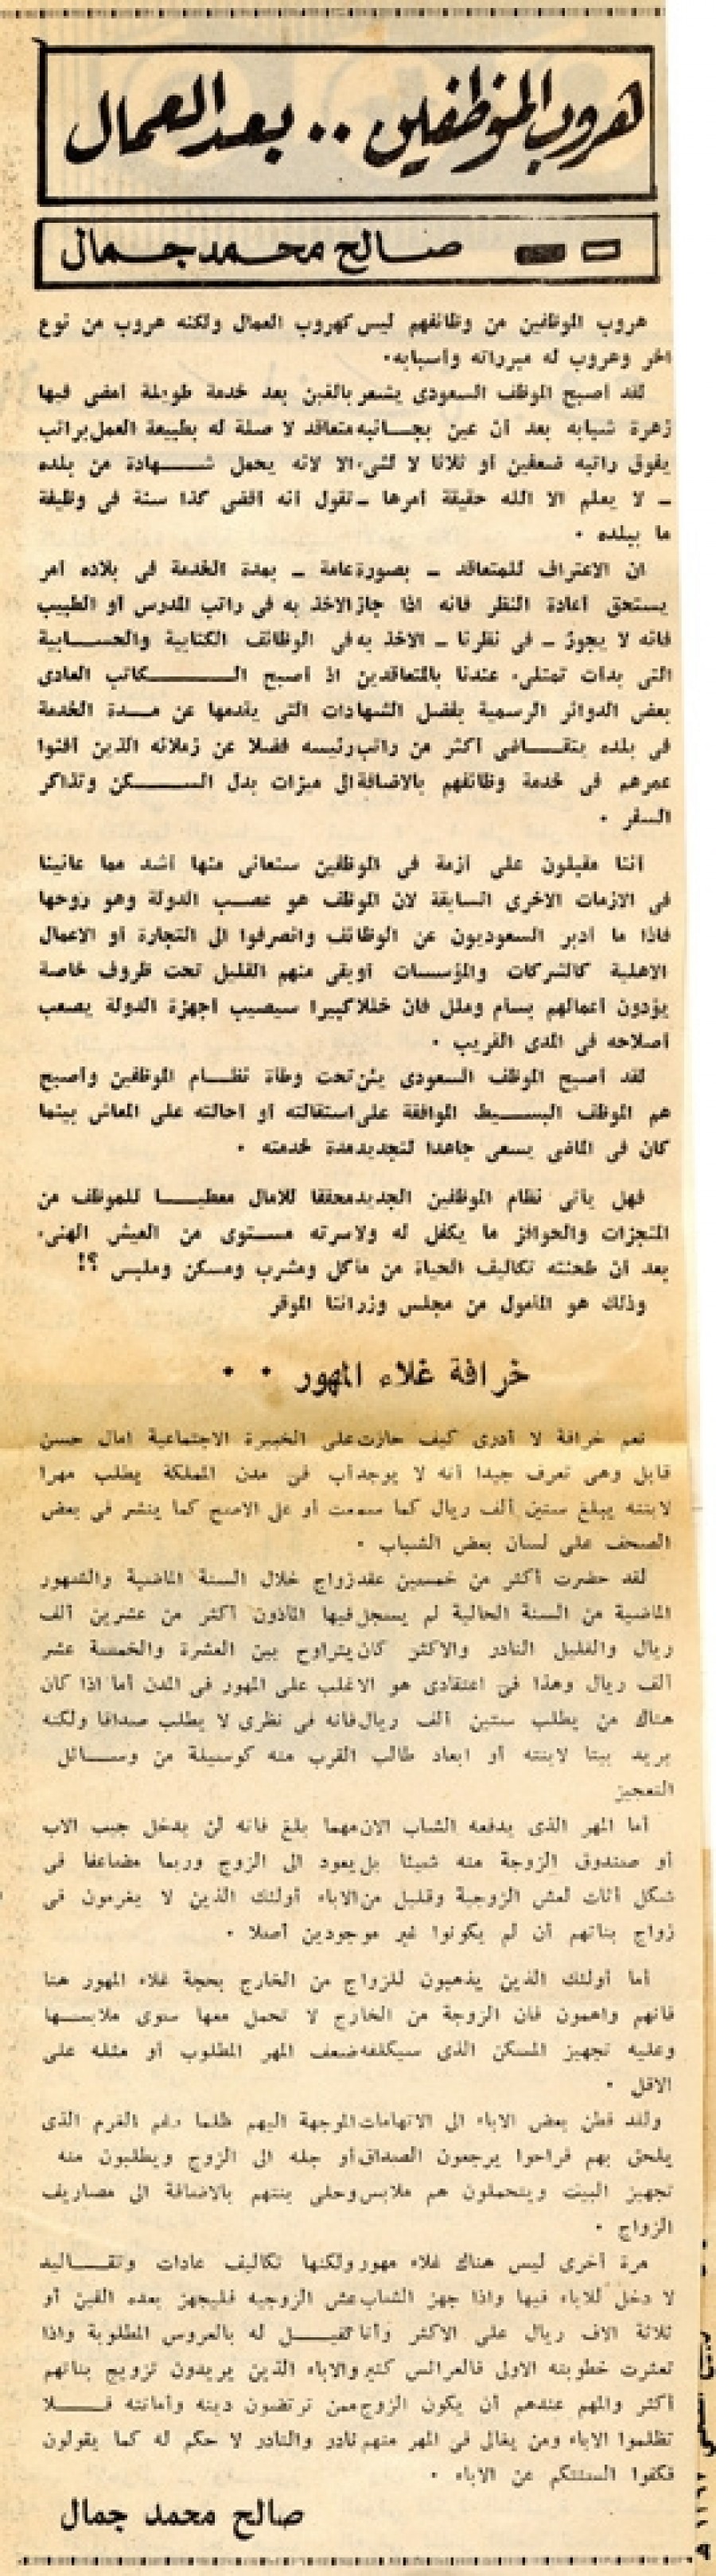 هروب الموظفين .. بعد العمال
صالح محمد جمال
هروب الموظفين من وظائفهم ليس كهروب العمال ولكنه هروب من نوع
آخر وهروب له مبرراته وأسبابه.
لقد أصبح الموظف السعودى يشعر بالغبن بعد خدمة طويلة أمضى فيها
زهرة شبابه بعد أن عين بجانبه متعاقد لا صلة له بطبيعة العمل براتب
يفوق راتبه ضعفين أو ثلاثا لا لشىء الا لانه يحمل شهادة من بلده
ـ لا يعلم الا الله حقيقة أمرها ـ تقول أنه أقضى كذا سنة فى وظيفة
ما ببلده .
ان الاعتراف للمتعاقد ـ بصورة عامة ـ بمدة الخدمة فى بلاده أمر
يستحق أعادة النظر فانه اذا جاز الاخذ به فى راتب المدرس أو الطبيب
فانه لا يجوز ـ فى نظرنا ـ الاخذ به فى الوظائف الكتابية والحسابية
التى بدأت تمتلىء عندنا بالمتعاقدين اذ أصبح الكاتب العادى
بعض الدوائر الرسمية بفضل الشهادات التى يقدمها عن مدة الخدمة
فى بلده يتقاضى أكثر من راتب رئيسه فضلا عن زملائه الذين أفنوا
عمرهم فى خدمة وظائفهم بالاضافة الى ميزات بدل السكن وتذاكر
السفر .
أننا مقبلون على أزمة فى الموظفين سنعانى منها أشد مما عانينا
فى الازمات الاخرى السابقة لان الموظف هو عصب الدولة وهو روحها
فاذا ما أدبر السعوديون عن الوظائف وانصرفوا الى التجارة أو الاعمال
الاهلية كالشركات والمؤسسات أوبقى منهم القليل تحت ظروف خاصة
يؤدون أعمالهم بسأم وملل فان خللا كبيرا سيصيب أجهزة الدولة يصعب
أصلاحه فى المدى القريب .
لقد أصبح الموظف السعودى يئن تحت وطأة نظام الموظفين وأصبح
هم الموظف البسيط الموافقة على استقالته أو احالته على المعاش بينما
كان فى الماضى يسعى جاهدا لتجديد مدة خدمته .
فهل يأتى نظام الموظفين الجديد محققا للآمال معطيا للموظف من
المنجزات والحوافز ما يكفل له ولاسرته مستوى من العيش الهنىء
بعد أن طحنته تكاليف الحياة من مأكل ومشرب ومسكن وملبس ؟!
وذلك هو المأمول من مجلس وزرائنا الموقر
خرافة غلاء المهور . .
نعم خرافة لا أدرى كيف جازت على الخبيرة الاجتماعية امال حسن
قابل وهى تعرف جيدا أنه لا يوجد أب فى مدن المملكة يطلب مهرا
لابنته يبلغ ستين ألف ريال كما سمعت أو على الاصح كما ينشر فى بعض
الصحف على لسان بعض الشباب .
لقد حضرت أكثر من خمسين عقد زواج خلال السنة الماضية والشهور
الماضية من السنة الحالية لم يسجل فيها المأذون أكثر من عشرين ألف
ريال والقليل النادر والاكثر كان يتراوح بين العشرة والخمسة عشر
ألف ريال وهذا فى اعتقادى هو الاغلب على المهور فى المدن أما اذا كان
هناك من يطلب ستين ألف ريال فانه فى نظرى لا يطلب صداقا ولكنه
يريد بيتا لابنته أو ابعاد طالب القرب منه كوسيلة من وسائل
التعجيز
أما المهر الذى يدفعه الشباب الان مهما بلغ فانه لن يدخل جيب الاب
أو صندوق الزوجة منه شيئا بل يعود الى الزوج وربما مضاعفا فى
شكل أثاث لعش الزوجية وقليل من الاباء أولئك الذين لا يغرمون فى
زواج بناتهم أن لم يكونوا غير موجودين أصلا .
أما أولئك الذين يذهبون للزواج من الخارج بحجة غلاء المهور هنا
فانهم واهمون فان الزوجة من الخارج لا تحمل معها سوى ملابسها
وعليه تجهيز المسكن الذى سيكلفه ضعف المهر المطلوب أو مثله على
الاقل .
ولقد فطن بعض الاباء الى الاتهامات الموجهة اليهم ظلما رغم الغرم الذى
يلحق بهم فراحوا يرجعون الصداق أو جله الى الزوج ويطلبون منه
تجهيز البيت ويتحملون هم ملابس وحلى بنتهم بالاضافة الى مصاريف
الزواج .
مرة أخرى ليس هناك غلاء مهور ولكنها تكاليف عادات وتقاليد
لا دخل للاباء فيها واذا جهز الشباب عش الزوجية فليجهز بعده ألفين أو
ثلاثة الاف ريال على الاكثر وأنا كفيل له بالعروس المطلوبة واذا
تعثرت خطوبته الاولى فالعرائس كثير والاباء الذين يريدون تزويج بناتهم
أكثر والمهم عندهم أن يكون الزوج ممن ترتضون دينه وأمانته فلا
تظلموا الاباء ومن يغالى فى المهر منهم نادر والنادر لا حكم له كما يقولون
فكفوا ألسنتكم عن الاباء .
صالح محمد جمال